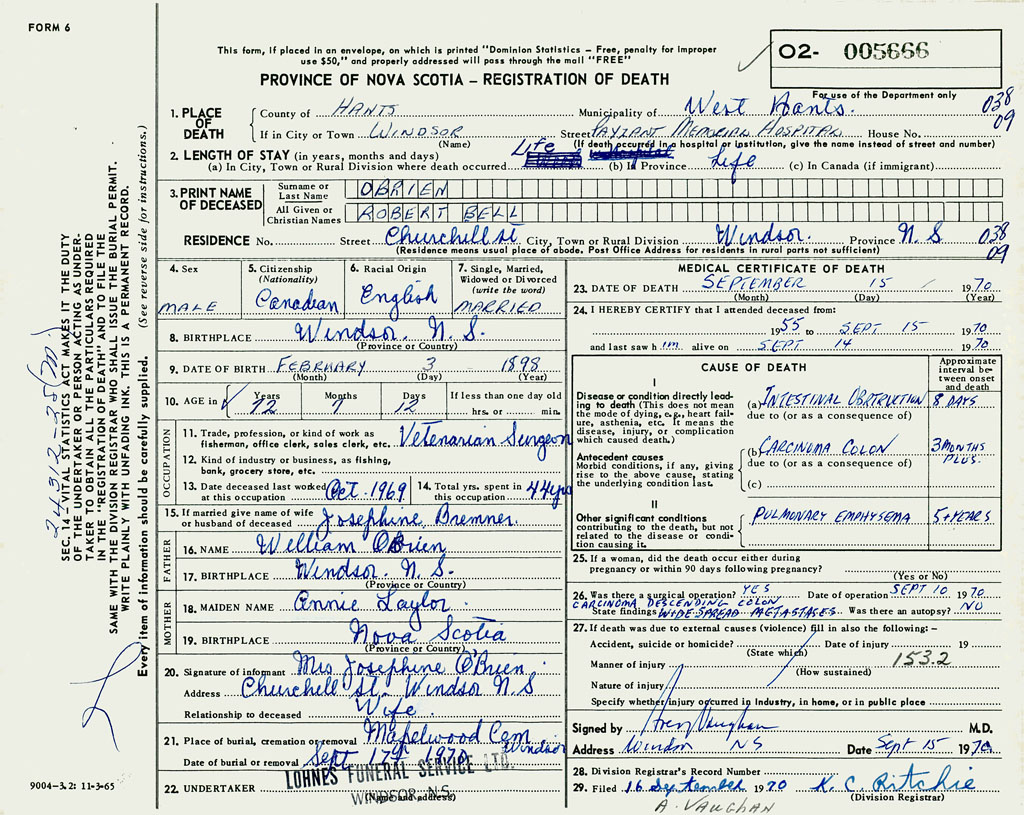 FORM 6
This form, if placed in an envelope, on which is printed "Dominion Statistics – Free, penalty for improper
use $50," and properly addressed will pass through the mail "FREE"
PROVINCE OF NOVA SCOTIA – REGISTRATION OF DEATH
02- 005666
For use of the Department only
038
09
1. PLACE OF DEATH
County of HANTS Municipality of West Hants.
If in City or Town WINDSOR Street PAYZANT MEMORIAL HOSPITAL House No.
(Name) (If death occurred in a hospital or institution, give the name instead of street and number)
2. LENGTH OF STAY (in years, months and days)
(a) In City, Town or Rural Division where death occurred Life (b) In Province Life (c) In Canada (if immigrant)
3. PRINT NAME OF DECEASED
Surname or Last Name OBRIEN
All Given or Christian Names ROBERT BELL
RESIDENCE No. Street Churchill St City, Town or Rural Division Windsor. Province N. S 038
09
(Residence means usual place of abode. Post Office Address for residents in rural parts not sufficient)
4. Sex MALE
5. Citizenship (Nationality) Canadian
6. Racial Origin English
7. Single, Married, Widowed or Divorced (write the word) MARRIED
8. BIRTHPLACE Windsor. N. S.
(Province or Country)
9. DATE OF BIRTH FEBRUARY 3 1898
(Month) (Day) (Year)
10. AGE in Years 72 Months 7 Days 12 If less than one day old
hrs. or min.
OCCUPATION
11. Trade, profession, or kind of work as
fisherman, office clerk, sales clerk, etc. Vetenarian Surgeon
12. Kind of industry or business, as fishing,
bank, grocery store, etc.
13. Date deceased last worked at this occupation Oct. 1969
14. Total yrs. spent in this occupation 44 yrs
15. If married give name of wife
or husband of deceased Josephine Bremner.
FATHER
16. NAME William O'Brien
17. BIRTHPLACE Windsor. N. S.
(Province or Country)
MOTHER
18. MAIDEN NAME Annie Taylor.
19. BIRTHPLACE Nova Scotia
(Province or Country)
20. Signature of informant Mrs Josephine O'Brien.
Address Churchill St. Windsor N S
Relationship to deceased Wife.
21. Place of burial, cremation or removal Mapelwood Cem Windsor
Date of burial or removal Sept 17th 1970
22. UNDERTAKER LOHNES FUNERAL SERVICE LTD.
WINDSOR, N.S.
(Name and address)
MEDICAL CERTIFICATE OF DEATH
23. DATE OF DEATH SEPTEMBER 15 1970
(Month) (Day) (Year)
24. I HEREBY CERTIFY that I attended deceased from:
1955 to SEPT 15 1970
and last saw him alive on SEPT 14 1970
CAUSE OF DEATH
Approximate interval between onset and death
I
Disease or condition directly leading to death (This does not mean the mode of dying, e.g., heart failure, asthenia, etc. It means the disease, injury, or complication which caused death.)
(a) INTESTINAL OBSTRUCTION 8 DAYS
due to (or as a consequence of)
Antecedent causes
Morbid conditions, if any, giving rise to the above cause, stating the underlying condition last.
(b) CARCINOMA COLON 3 MONTHS PLUS.
due to (or as a consequence of)
(c)
II
Other significant conditions
contributing to the death, but not related to the disease or condition causing it.
PULMONARY EMPHYSEMA 5+YEARS
25. If a woman, did the death occur either during
pregnancy or within 90 days following pregnancy?
(Yes or No)
26. Was there a surgical operation? YES Date of operation SEPT 10 1970
CARCINOMA DESCENDING COLON
State findings WIDE SPREAD METASTASES. Was there an autopsy? NO
27. If death was due to external causes (violence) fill in also the following:–
Accident, suicide or homicide? Date of injury 19
(State which)
Manner of injury 153.2
(How sustained)
Nature of injury
Specify whether injury occurred in industry, in home, or in public place
Signed by Vaughan M.D.
Address Windsor NS Date Sept 15 1970
28. Division Registrar's Record Number
29. Filed 16 September 1970 K. C. Ritchie
(Division Registrar)
A. VAUGHAN
9004–3.2: 11-3-65
24312-25
SEC. 14—VITAL STATISTICS ACT MAKES IT THE DUTY
OF THE UNDERTAKER OR PERSON ACTING AS UNDER-
TAKER TO OBTAIN ALL THE PARTICULARS REQUIRED
IN THE "REGISTRATION OF DEATH" AND TO FILE THE
SAME WITH THE DIVISION REGISTRAR WHO SHALL ISSUE THE BURIAL PERMIT.
WRITE PLAINLY WITH UNFADING INK. THIS IS A PERMANENT RECORD.
Every item of information should be carefully supplied. (See reverse side for instructions.)